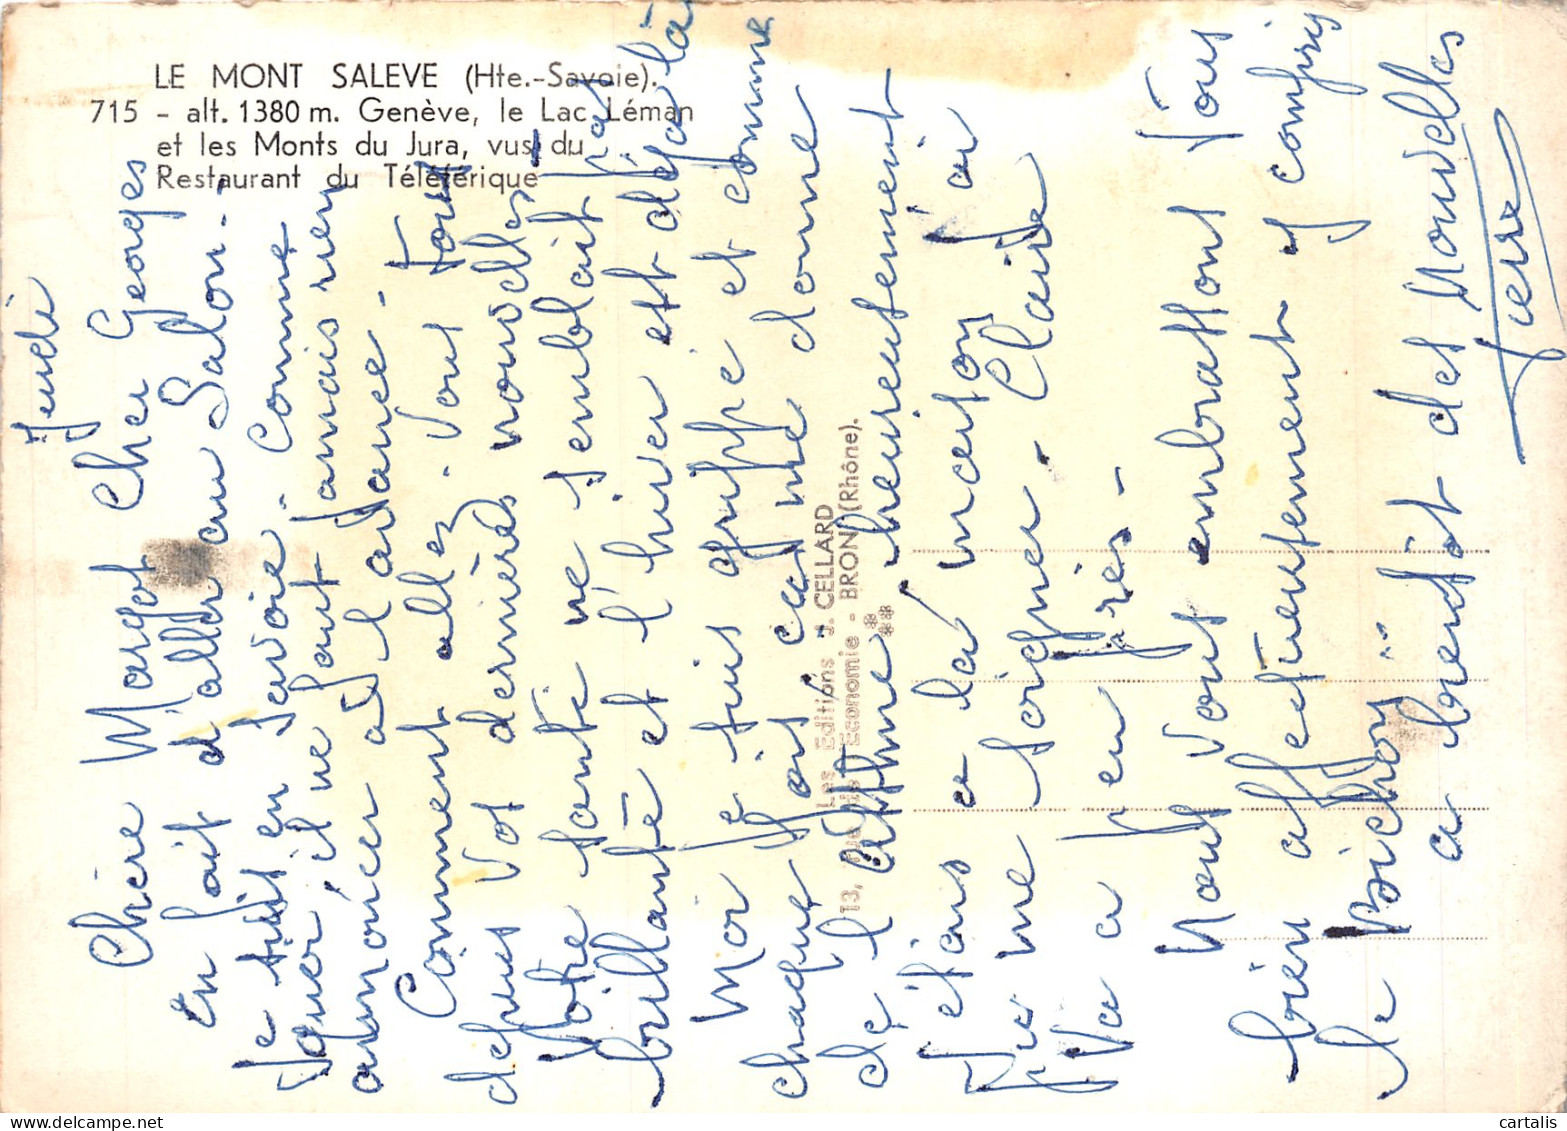 LE MONT SALEVE (Hte.-Savoie).
715 - alt. 1380 m. Genève, le Lac Léman
et les Monts du Jura, vus du
Restaurant du Téléférique
Les Editions J. CELLARD
13, Rue de l'Economie - BRON (Rhône).
Jeudi
Chère Margot Cher Georges
En fait d'aller au Salon -
Je suis en Savoie - Comme
quoi, il ne faut jamais rien
annoncer à l'avance -
Comment allez-vous tous
depuis vos dernières nouvelles
Votre santé ne semblait pas
brillante et l'hiver est déjà là
Moi je suis grippé et comme
chaque fois ça me donne
de l'asthme heureusement
j'étais à la maison j'ai
pu me soigner - Claude
va à peu près -
Nous vous embrassons tous
bien affectueusement y compris
le Bichon
à bientôt des nouvelles
Pierre
cartalis